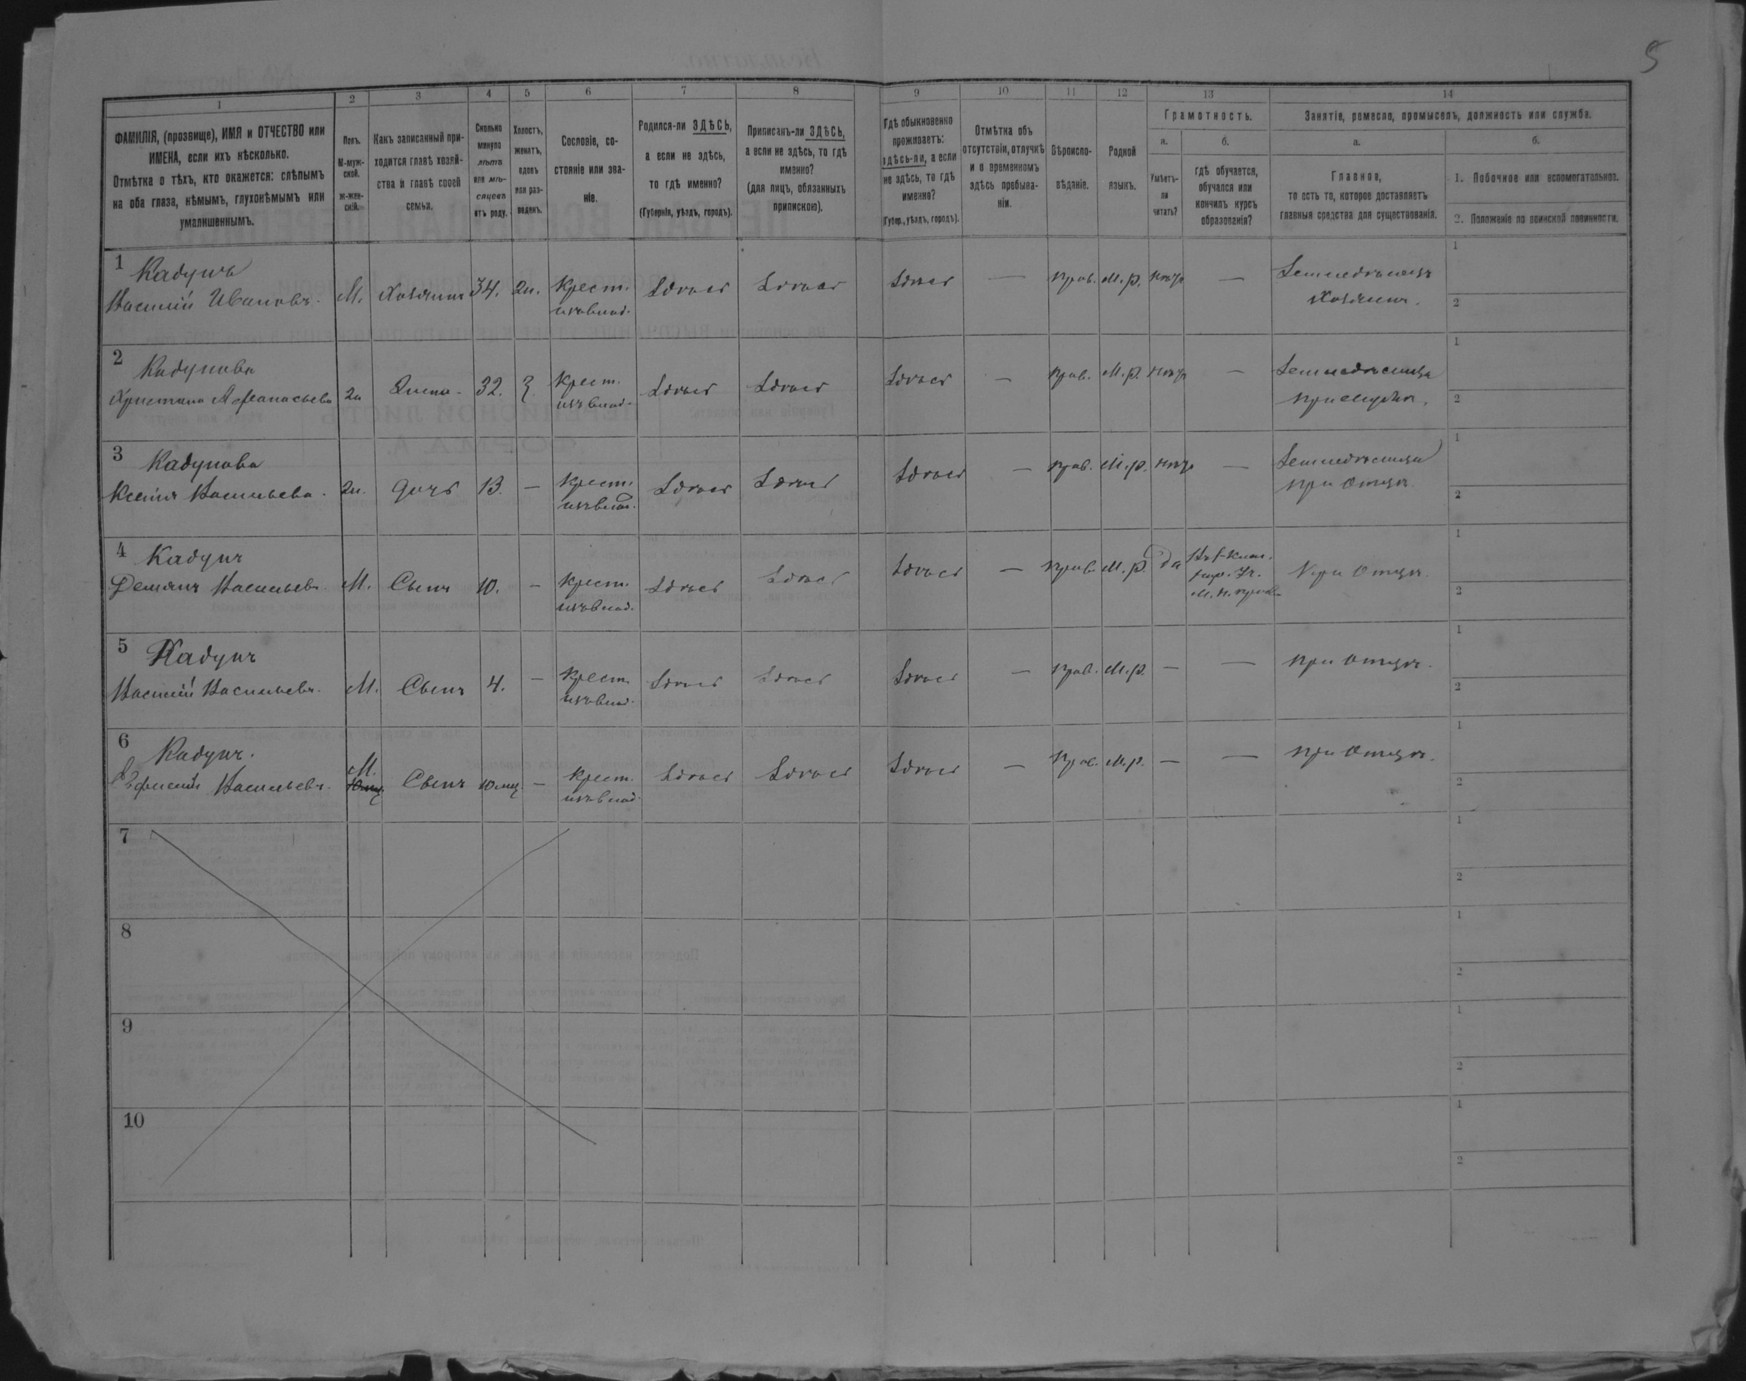 5
1 2 3 4 5 6 7 8 9 10 11 12 13 14
ФАМИЛІЯ, (прозвище), ИМЯ и ОТЧЕСТВО или
ИМЕНА, если ихъ нѣсколько.
Отмѣтка о тѣхъ, кто окажется: слѣпымъ
на оба глаза, нѣмымъ, глухонѣмымъ или
умалишеннымъ.
Полъ.
М-муж-
ской.
Ж-жен-
скій.
Какъ записанный при-
ходится главѣ хозяй-
ства и главѣ своей
семьи.
Сколько
минуло
лѣтъ
или мѣ-
сяцевъ
отъ роду.
Холостъ,
женатъ,
вдовъ
или раз-
веденъ.
Сословіе, со-
стояніе или зва-
ніе.
Родился-ли ЗДѢСЬ,
а если не здѣсь,
то гдѣ именно?
(Губернія, уѣздъ, городъ).
Приписанъ-ли ЗДѢСЬ,
а если не здѣсь, то гдѣ
именно?
(для лицъ, обязанныхъ
припискою).
Гдѣ обыкновенно
проживаетъ:
здѣсь-ли, а если
не здѣсь, то гдѣ
именно?
(Губер., уѣздъ, городъ).
Отмѣтка объ
отсутствіи, отлучкѣ
и о временномъ
здѣсь пребыва-
ніи.
Вѣроиспо-
вѣданіе.
Родной
языкъ.
Грамотность.
а.
Умѣетъ-
ли
читать?
б.
гдѣ обучается,
обучался или
кончилъ курсъ
образованія?
Занятіе, ремесло, промыселъ, должность или служба.
а.
Главное,
то есть то, которое доставляетъ
главныя средства для существованія.
б.
1. Побочное или вспомогательное.
2. Положеніе по воинской повинности.
1 Кадунъ
Василій Ивановъ. М. Хозяинъ 34. Крест. Здѣсь Здѣсь Здѣсь — прав. М.р. нѣтъ — Земледѣлецъ
изъ влад. Хозяинъ.
1
2
2 Кадунова
Христина Афанасьева Жена 32. З. Крест. Здѣсь Здѣсь Здѣсь — прав. М.р. нѣтъ —
изъ влад. при мужѣ.
1
2
3 Кадунова
Ксенія Васильева. дочь 13. — Крест. Здѣсь Здѣсь Здѣсь — прав. М.р. нѣтъ —
изъ влад. при отцѣ
1
2
4 Кадунъ
Демянъ Васильевъ М. Сынъ 10. — Крест. Здѣсь Здѣсь Здѣсь — прав. М.р. да При отцѣ
изъ влад.
1
2
5 Кадунъ
Василій Васильевъ. М. Сынъ 4. — Крест. Здѣсь Здѣсь Здѣсь — прав. М.р. — — при отцѣ.
изъ влад.
1
2
6 Кадунъ.
Васильевъ. М. Сынъ 10 мц — Крест. Здѣсь Здѣсь Здѣсь — прав. М.р. — — при отцѣ.
изъ влад.
1
2
7
1
2
8
1
2
9
1
2
10
1
2